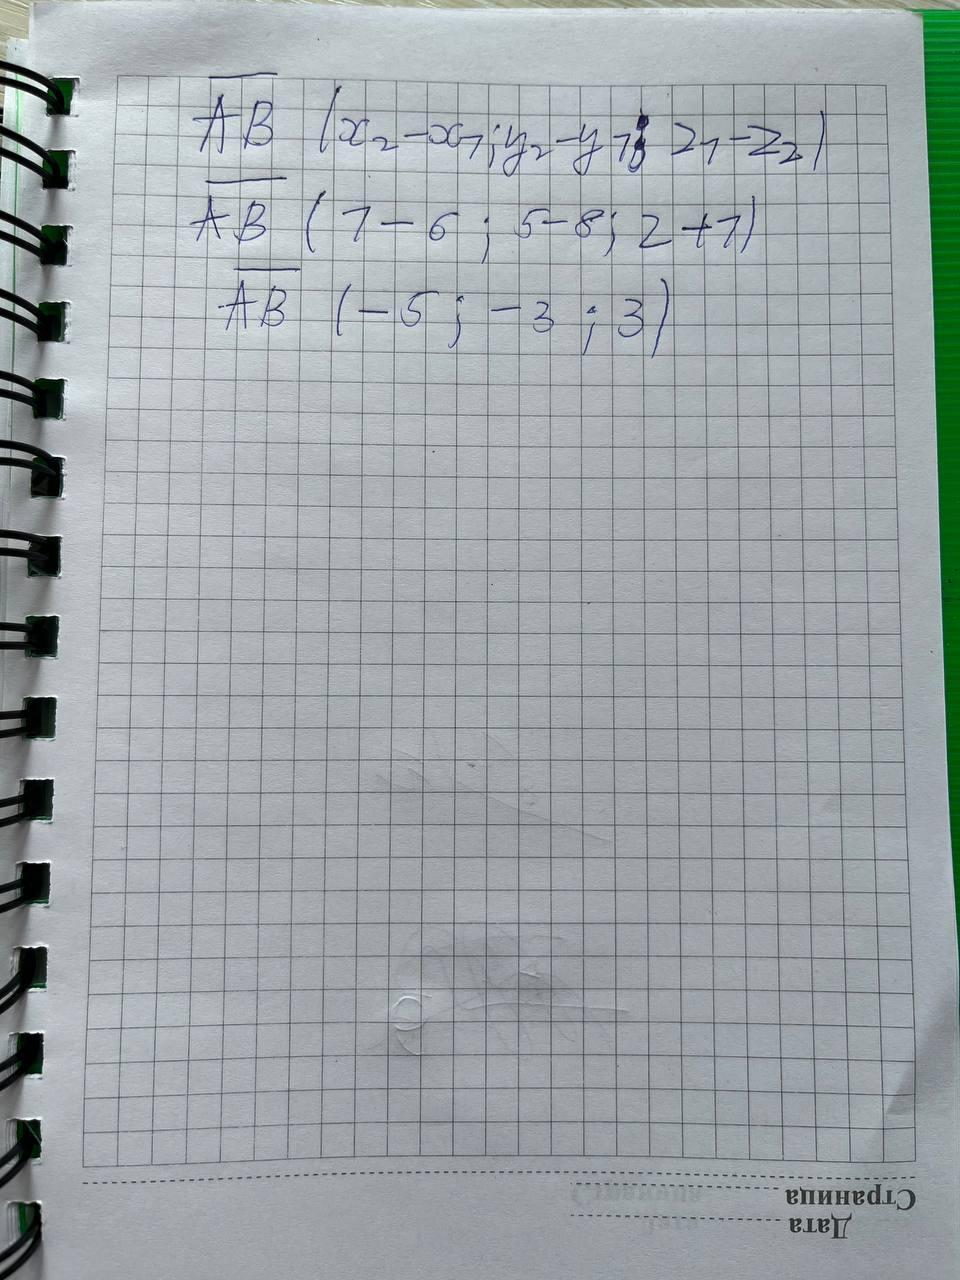 AB (x₂-x₁; y₂-y₁; z₁-z₂)
AB (1-6; 5-8; 2+1)
AB (-5; -3; 3)
Страница
Дата